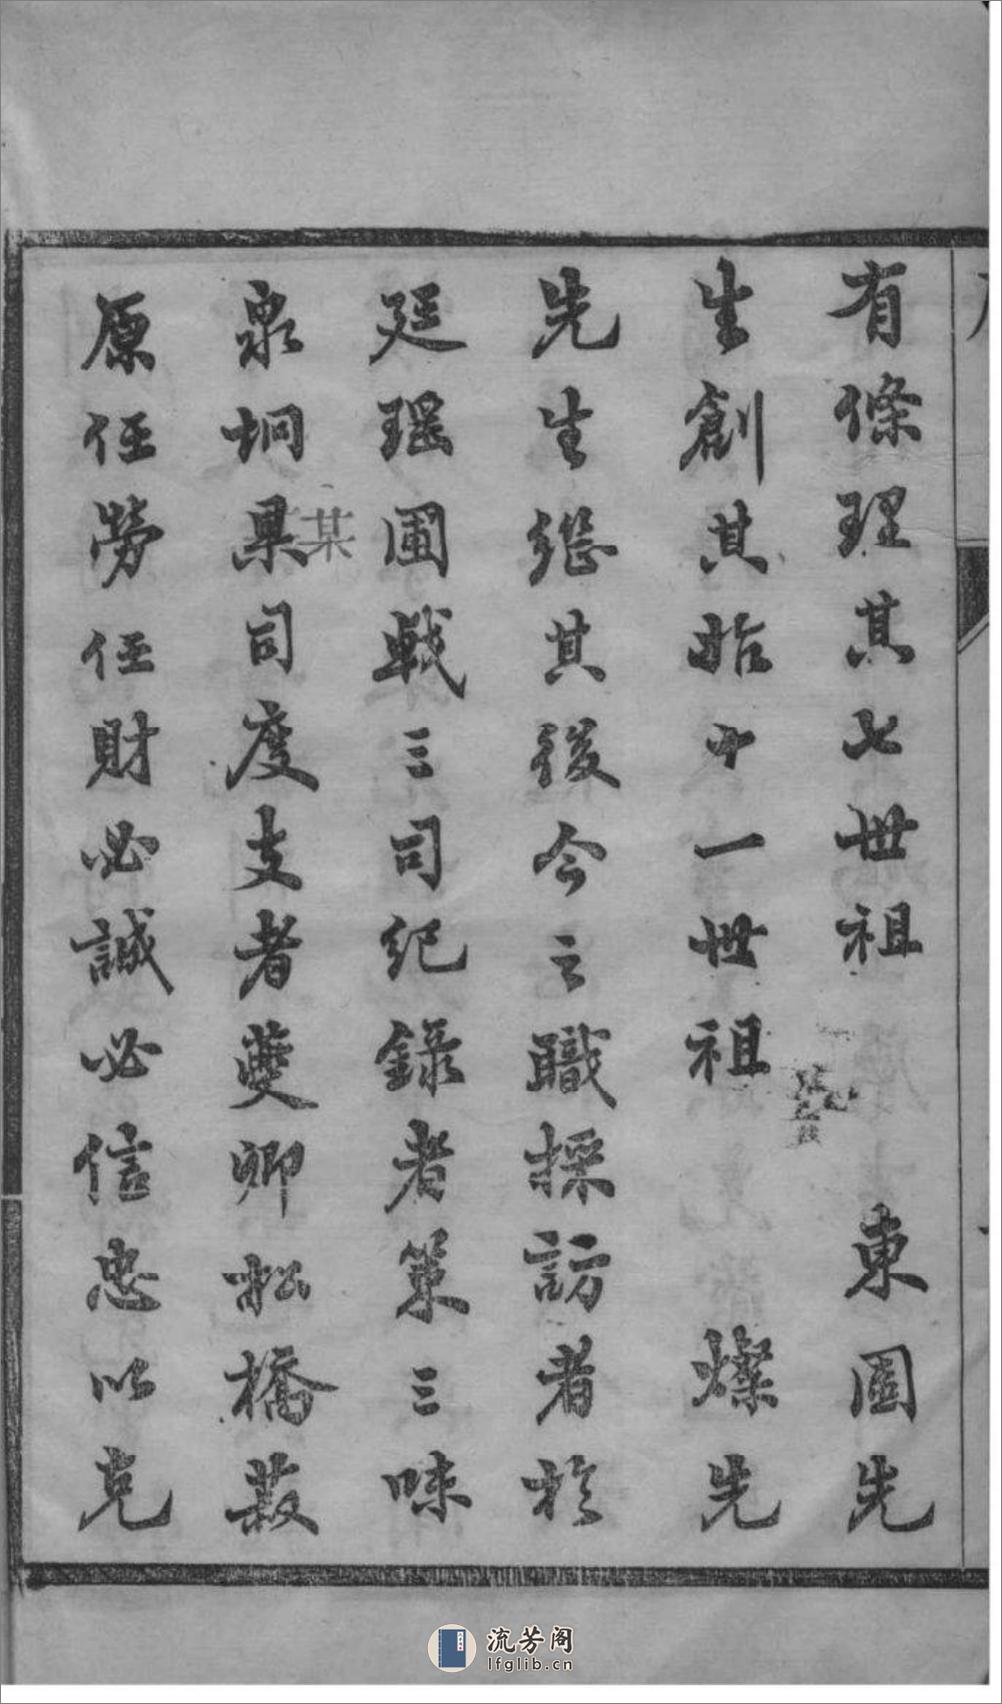 有條理其七世祖 東園先
生創其始十一世祖 燦先
先生繼其後今之職採訪者於
廷瑶圃戟三司紀錄者策三味
泉坰杲司度支者夔卿松橋菽
某
原任勞任財必誠必信忠以克
流芳阁
lfglib.cn